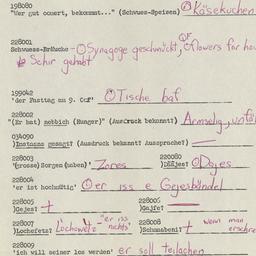 198080
"Wer gut oouert, bekommt..." (Schwuos-Speizen) Käsekuchen
228001
Schwuess-Bräuche - Synagoge geschmückt, QF flowers for hou
Schir gehabt
199042
'der Festtag am 9. Oof' Tische baf
228002
"(Er hat) nebbich (Hunger)" (Ausdruck bekannt) Armselig, unfä
034090
)Instanz gesagt( (Ausdruck bekannt? Aussprache?) —
228003
'(grosse)Sorgen(haben)' Zores
220080
)DEjes( Dajes
228004
'er ist hochmütig' er iss e Gejesbündel
228005
)Gejes( +
228006
)Gajfe( —
228007
)Lochefetz( Lochowetz "er iss nichts"
228008
)Schmabeni( + wenn man erschre
228009
'ich will seiner los werden' er soll teilachen